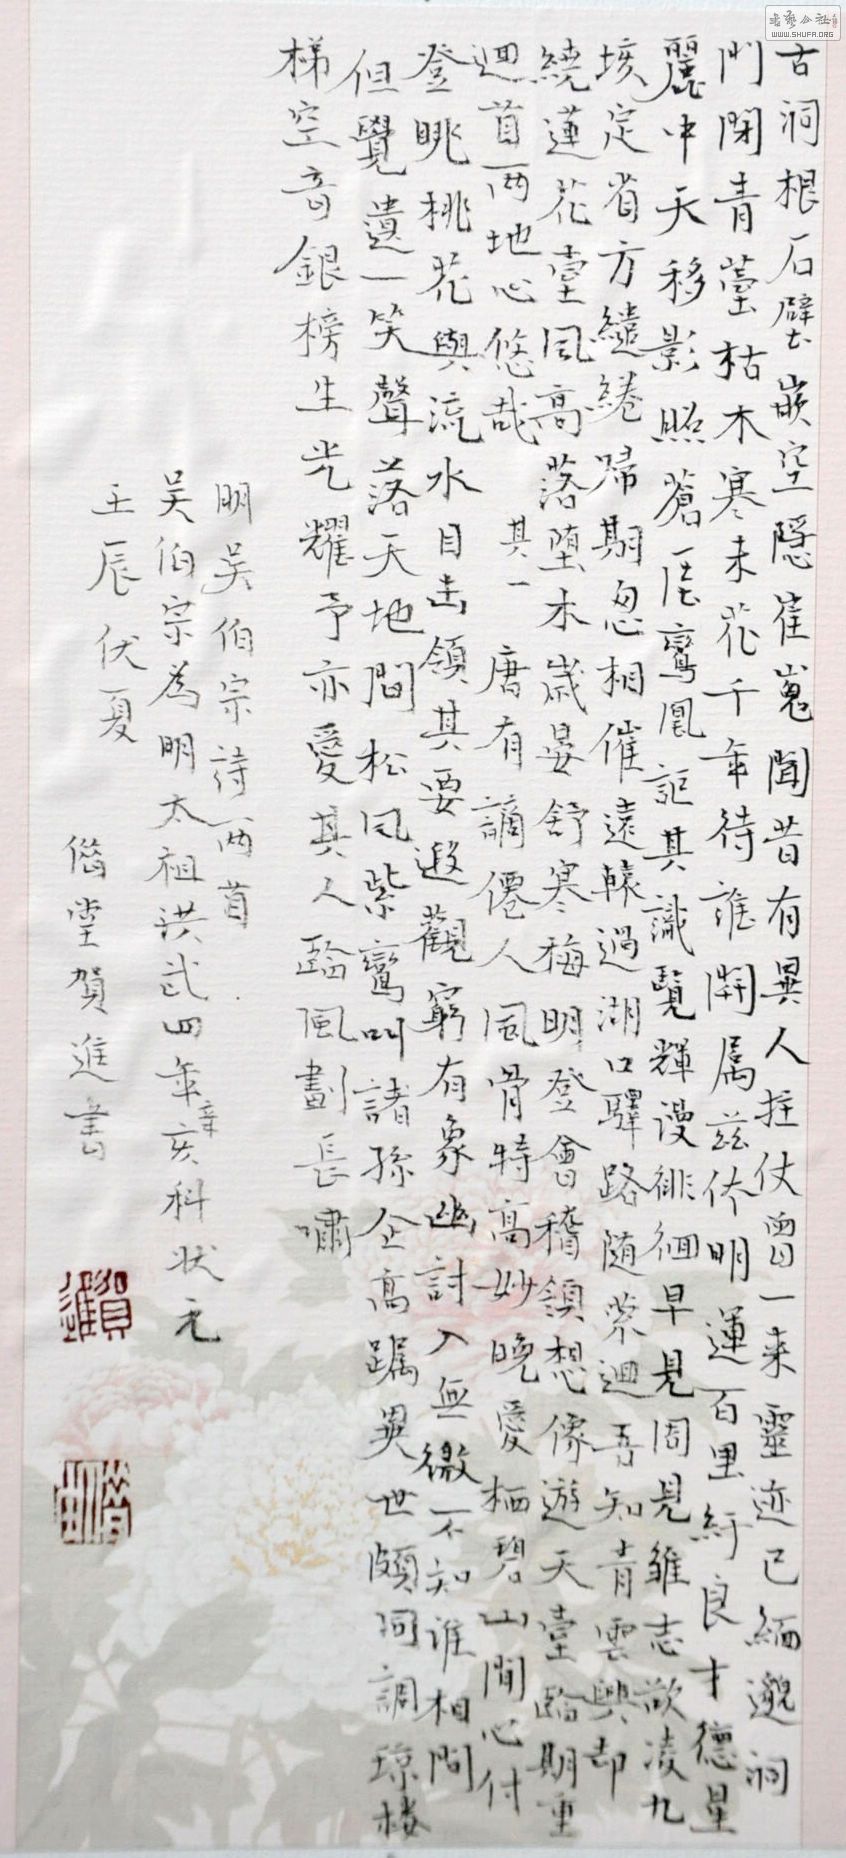 古洞根石壁嵌空隱崔嵬聞昔有異人拄仗曾一来靈迹已緬邈洞
門閉青薹枯木寒未花千年待誰開屬兹休明運百里紆良才德星
麗中天移影照蒼崖鸞凰詎其識覽輝謾徘徊早見周見雖志欲凌九
垓定省方繾綣歸期忽相催遠轅過湖口驛路随縈迴吾知青雲興却
繞蓮花臺風高落堕木歲晏舒寒梅明登會稽領想像遊天臺臨期重
迴首兩地心悠哉 其一 唐有謫僊人風骨特高妙晚愛栖碧山閒心付
登眺桃花與流水目击領其要遐觀窮有象幽討入無徼不知誰相問
但覺遺一笑聲落天地間松风紫鸞叫諸孫企高躅異世頗同調琼楼
梯空音銀榜生光耀予亦愛其人臨風劃長嘯
明吴伯宗詩两首
吴伯宗為明太祖洪武四年辛亥科状元
壬辰伏夏
偤堂賀進書
賀進
WWW.SHUFA.ORG